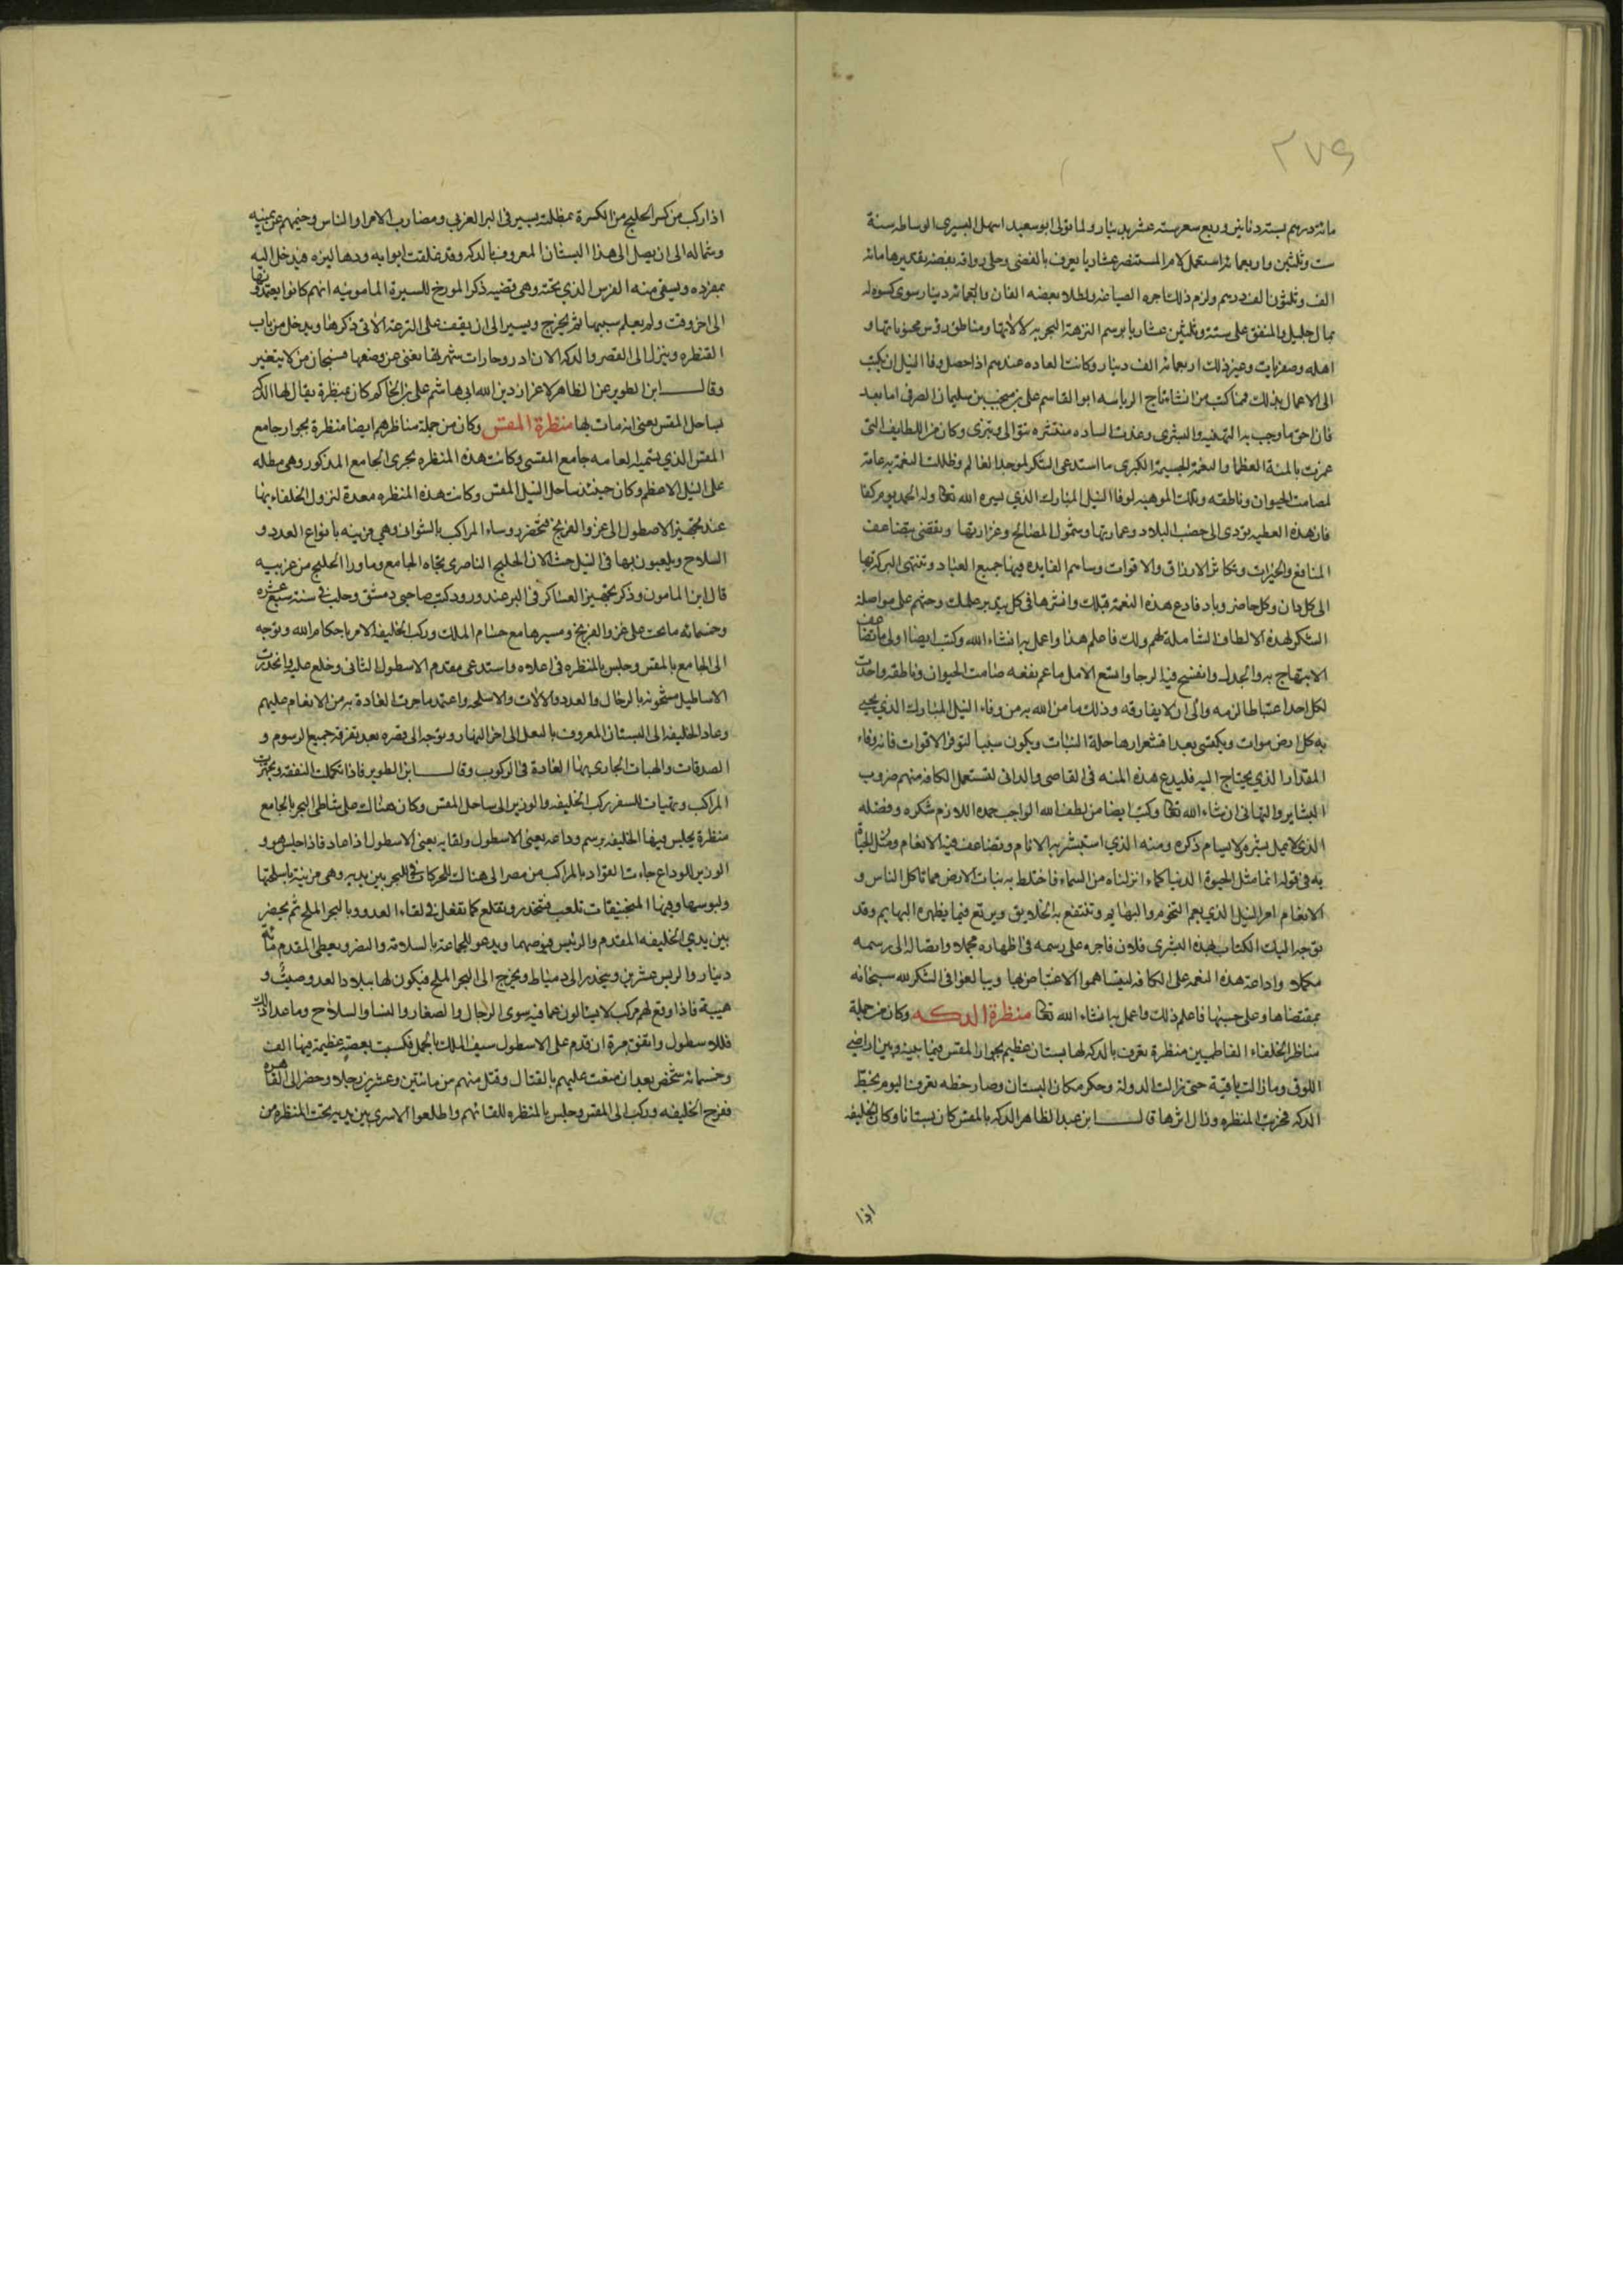 ٢٧٩
مائة درهم بستة دنانير وربع سعر ستة عشر بدينار ولما تولى ابو سعيد اسهل التسترى الوساطه سنة
ست وثلثين واربعمائه استعمل لامر المستنصر عشاريا يعرف بالفضى وحلى رواقه بفضه تقديرها مائه
الف وثلثون الف درهم ولزم ذلك اجره الصياغه ولطلاء بعضه الفان واربعمائه دينار سوى كسوه له
بمال جليل والمنفق على ستة وثلثين عشاريا برسم النزهة البحريه لالاتها ومناطق ورؤس منجوقاتها و
اهله وصفريات وغير ذلك اربعمائه الف دينار وكانت العاده عندهم اذا حصل وفا النيل ان يكتب
الى الاعمال بذلك فما كتب من انشا تاج الرياسه ابو القاسم على بن منجب بن سليمان الصرفى اما بعد
فان احق ما وجب به التهنيه والبشرى وغدت الساده منتشره تتوالى وتترى وكان من اللطايف التى
غمرت بالمنة العظما والنعمة الجسيمة الكبرى ما استدعى الشكر لموجد العالم وظلت النعمة به عامة
لصامت الحيوان وناطقه وتلك الموهبه لوفا النيل المبارك الذي يسره الله تعالى وله الحمد يوم كذا
فان هذه العطيه يودى الى خصب البلاد وعمارتها وشمول المصالح وغزارتها ويقضى بتضاعف
المنافع والخيرات وتكاثر الارزاق والاقوات ويساهم الفايده فيها جميع العباد وتنتهى البركه بها
الى كل دان وكل حاضر وباد فاذع هذه النعمة قبلك وانشرها فى كل يتدبر عملك وحثهم على مواصلة
الشكر لهذه الالطاف الشاملة لهم ولك فاعلم هذا واعمل به انشاء الله وكتب ايضا اولى ما تضاعف
الابتهاج به والجدل وانفسح فيه الرجا واتسع الامل ما عم نفعه صامت الحيوان وناطقه واحدث
لكل احد اغتباطا لزمه والى ان لا يفارقه وذلك ما من الله به من وفاء النيل المبارك الذي يحيى
به كل ارض موات ويكتسى بعد اقشعرارها حلة النبات ويكون سببا لتوفر الاقوات فانه وفاء
المقدار الذي يحتاج اليه فليذع هذه المنه فى القاصى والدانى لتستعمل الكافه منهم ضروب
البشاير والتهانى ان شاء الله تعالى وكتب ايضا من لطف الله الواجب حمده اللازم شكره وفضله
الذي لا يمل بشره ولا يسام ذكره ومنه الذي استبشر به الانام وتضاعف فيه الانعام ومثل الحياة
به فى قوله انما مثل الحيوة الدنيا كماء انزلناه من السماء فاختلط به نبات الارض مما تاكل الناس و
الانعام امر النيل الذي يعم التخوم والبهايم وتنتفع به الخلايق ويرتع فيما يظهره البهايم وقد
توجه اليك الكتاب بهذه البشرى فلان فاجره على رسمه فى اظهاره مجملا وايصاله الى رسمه
مكملا واذاعة هذه النعمه على الكافه ليتساهموا الاغتباط بها ويبالغوا فى الشكر لله سبحانه
بمقتضاها وعلى حسبها فاعلم ذلك واعمل به انشاء الله تعالى منظرة الدكه وكان من جملة
مناظر الخلفاء الفاطميين منظرة تعرف بالدكه لها بستان عظيم بجوار المقس فيما بينه وبين اراضى
اللوق وما زالت باقية حتى زالت الدولة وحكر مكان البستان وصار خطه تعرف اليوم بخط
الدكه فخربت المنظره وزال اثرها قال ابن عبد الظاهر الدكه بالمقس كان بستانا وكان الخليفه
اذا
اذا ركب من كسر الخليج من السكرة بمظلته يسير فى البر الغربى ومضارب الامراء والناس وخيمهم عن يمينه
وشماله الى ان يصل الى هذا البستان المعروف بالدكه وقد غلقت ابوابه ودهاليزه فيدخل اليه
بمفرده ويسقى منه الفرس الذي تحته وهى قضيه ذكر المورخ للسيرة المامونيه انهم كانوا يعتمدونها
الى اخر وقت ولم يعلم سببها ثم يخرج ويسير الى ان يقف على الترعة الاتى ذكرها ويدخل من باب
القنطره وينزل الى القصر والدكه الان ادر وحارات شهرتها تغنى عن وصفها فسبحان من لا يتغير
وقال ابن الطوير عن الظاهر لاعزاز دين الله ابى هاشم على بن الحاكم كان بمنظرة يقال لها الدكه
بساحل المقس يعنى انه مات بها منظرة المقس وكان من جملة مناظرهم ايضا منظرة بجوار جامع
المقس الذي يسميه العامه جامع المقسى وكانت هذه المنظره بحرى الجامع المذكور وهى مطله
على النيل الاعظم وكان حينئذ ساحل النيل المقس وكانت هذه المنظره معدة لنزول الخلفاء بها
عند تجهيز الاصطول الى غزو الفرنج فتحضر روساء المراكب بالشوانى وهى مزينه بانواع العدد و
السلاح ويلعبون بها فى النيل حيث الان الخليج الناصرى تجاه الجامع وما ورا الخليج من غربيه
قال ابن المامون وذكر تجهيز العساكر فى البر عند ورود كتب صاحبى دمشق وحلب فى سنة سبع عشره
وخمسمائه ما يحث على غزو الفرنج ومسيرها مع حسام الملك وركب الخليفه الامر باحكام الله وتوجه
الى الجامع بالمقس وجلس بالمنظره فى اعلاه واستدعى مقدم الاسطول الثانى وخلع عليه وانحدرت
الاساطيل مشحونه بالرجال والعدد والالات والاسلحه واعتمد ما جرت العادة به من الانعام عليهم
وعاد الخليفه الى البستان المعروف بالبعل الى اخر النهار وتوجه الى قصره بعد تفرقة جميع الرسوم و
الصدقات والهبات الجارى بها العادة فى الركوب وقال ابن الطوير فاذا تكملت النفقه وتجهزت
المراكب وتهيات للسفر ركب الخليفه والوزير الى ساحل المقس وكان هناك على شاطى البحر بالجامع
منظرة يجلس فيها الخليفه برسم وداعه يعنى الاسطول ولقايه يعنى الاسطول اذا عاد فاذا جلس هو و
الوزير للوداع جاءت القواد بالمراكب من مصر الى هناك للحركات فى البحر بين يديه وهى مزينة باسلحتها
ولبوسها وفيها المنجنيقات تلعب فتنحدر وتقلع كما تفعل فى لقاء العدو بالبحر الملح ثم يحضر
بين يدي الخليفه المقدم والرئيس فيوصيهما ويدعو للجماعة بالسلامة والنصر ويعطى المقدم مائة
دينار والريس عشرين وينحدر الى دمياط ويخرج الى البحر الملح فيكون لها ببلاد العدو صيت و
هيبة فاذا وقع لهم مركب لا يسالون عما فيه سوى الرجال والصغار والنسا والسلاح وما عدا ذلك
فللاسطول واتفق مرة ان قدم على الاسطول سيف الملك الجمل فكسب بعضه عظيمة فيها الف
وخمسمائه شخص بعد ان صعبت عليهم بالقتال وقتل منهم من مائتين وعشرين رجلا وحضر الى القاهره
ففرح الخليفه وركب الى المقس وجلس بالمنظره للقائهم واطلعوا الاسرى بين يديه تحت المنظره من